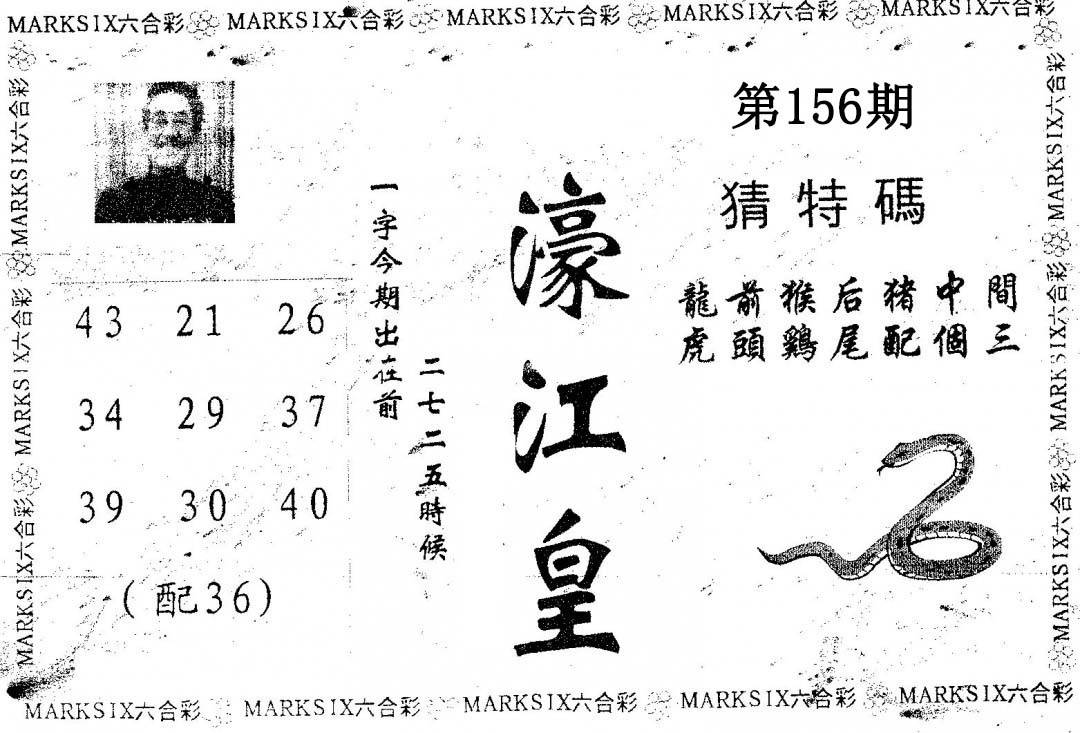 MARKSIX六合彩 MARKSIX六合彩 MARKSIX六合彩 MARKSIX六合彩 MARKSIX六合彩
MARKSIX六合彩 MARKSIX六合彩 MARKSIX六合彩
43 21 26
34 29 37
39 30 40
(配36)
一字今期出在前
二七二五時候
濠江皇
第156期
猜特碼
龍前猴后猪中間
虎頭鷄尾配個三
MARKSIX六合彩 MARKSIX六合彩 MARKSIX六合彩
MARKSIX六合彩 MARKSIX六合彩 MARKSIX六合彩 MARKSIX六合彩 MARKSIX六合彩